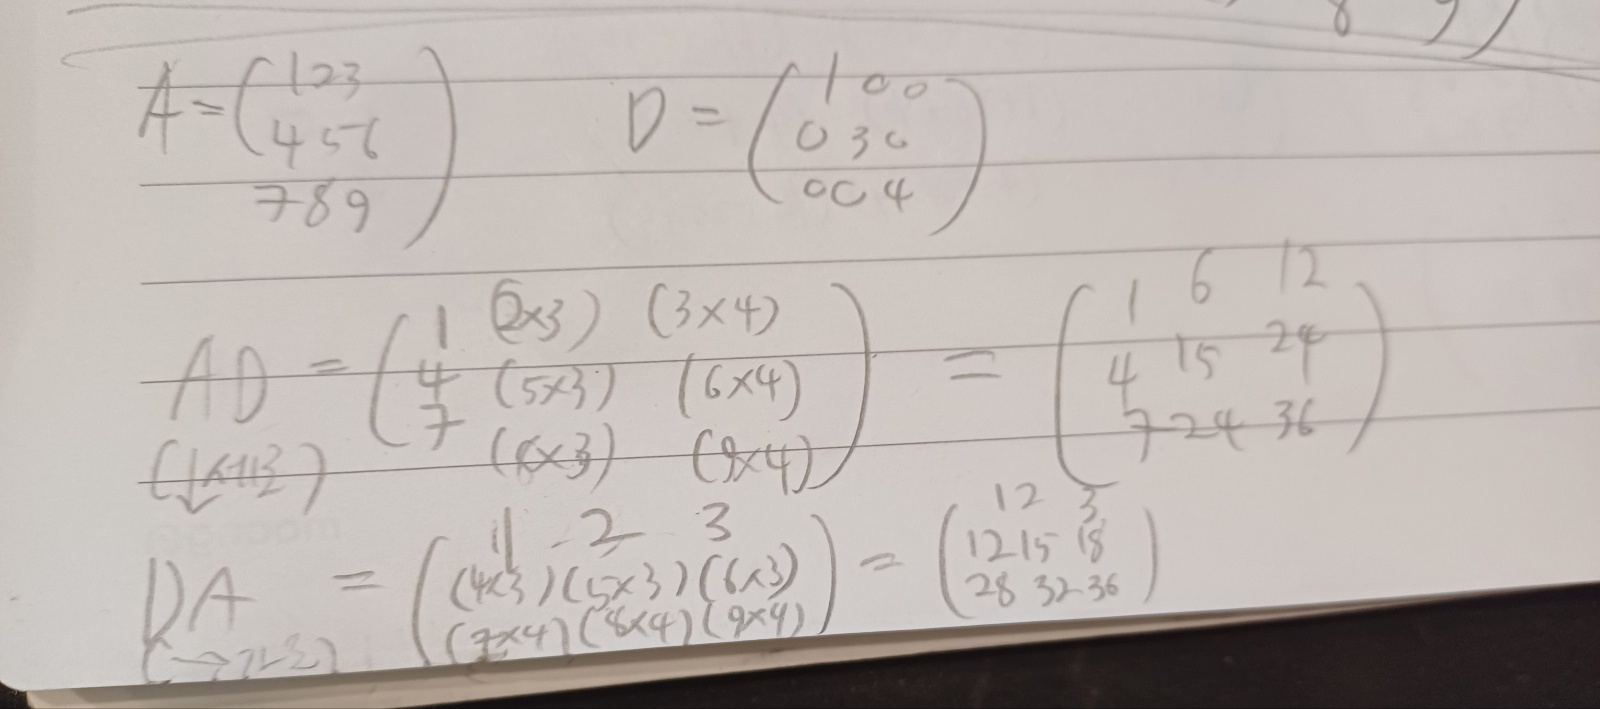 8 9)
A = ( 1 2 3
4 5 6
7 8 9 )
D = ( 1 0 0
0 3 0
0 0 4 )
AD = ( 1 (2×3) (3×4)
4 (5×3) (6×4)
7 (×3) (9×4) ) = ( 1 6 12
4 15 24
7 24 36 )
DA = ( 1 2 3
(4×3) (5×3) (6×3)
(7×4) (8×4) (9×4) ) = ( 1 2 3
12 15 18
28 32 36 )